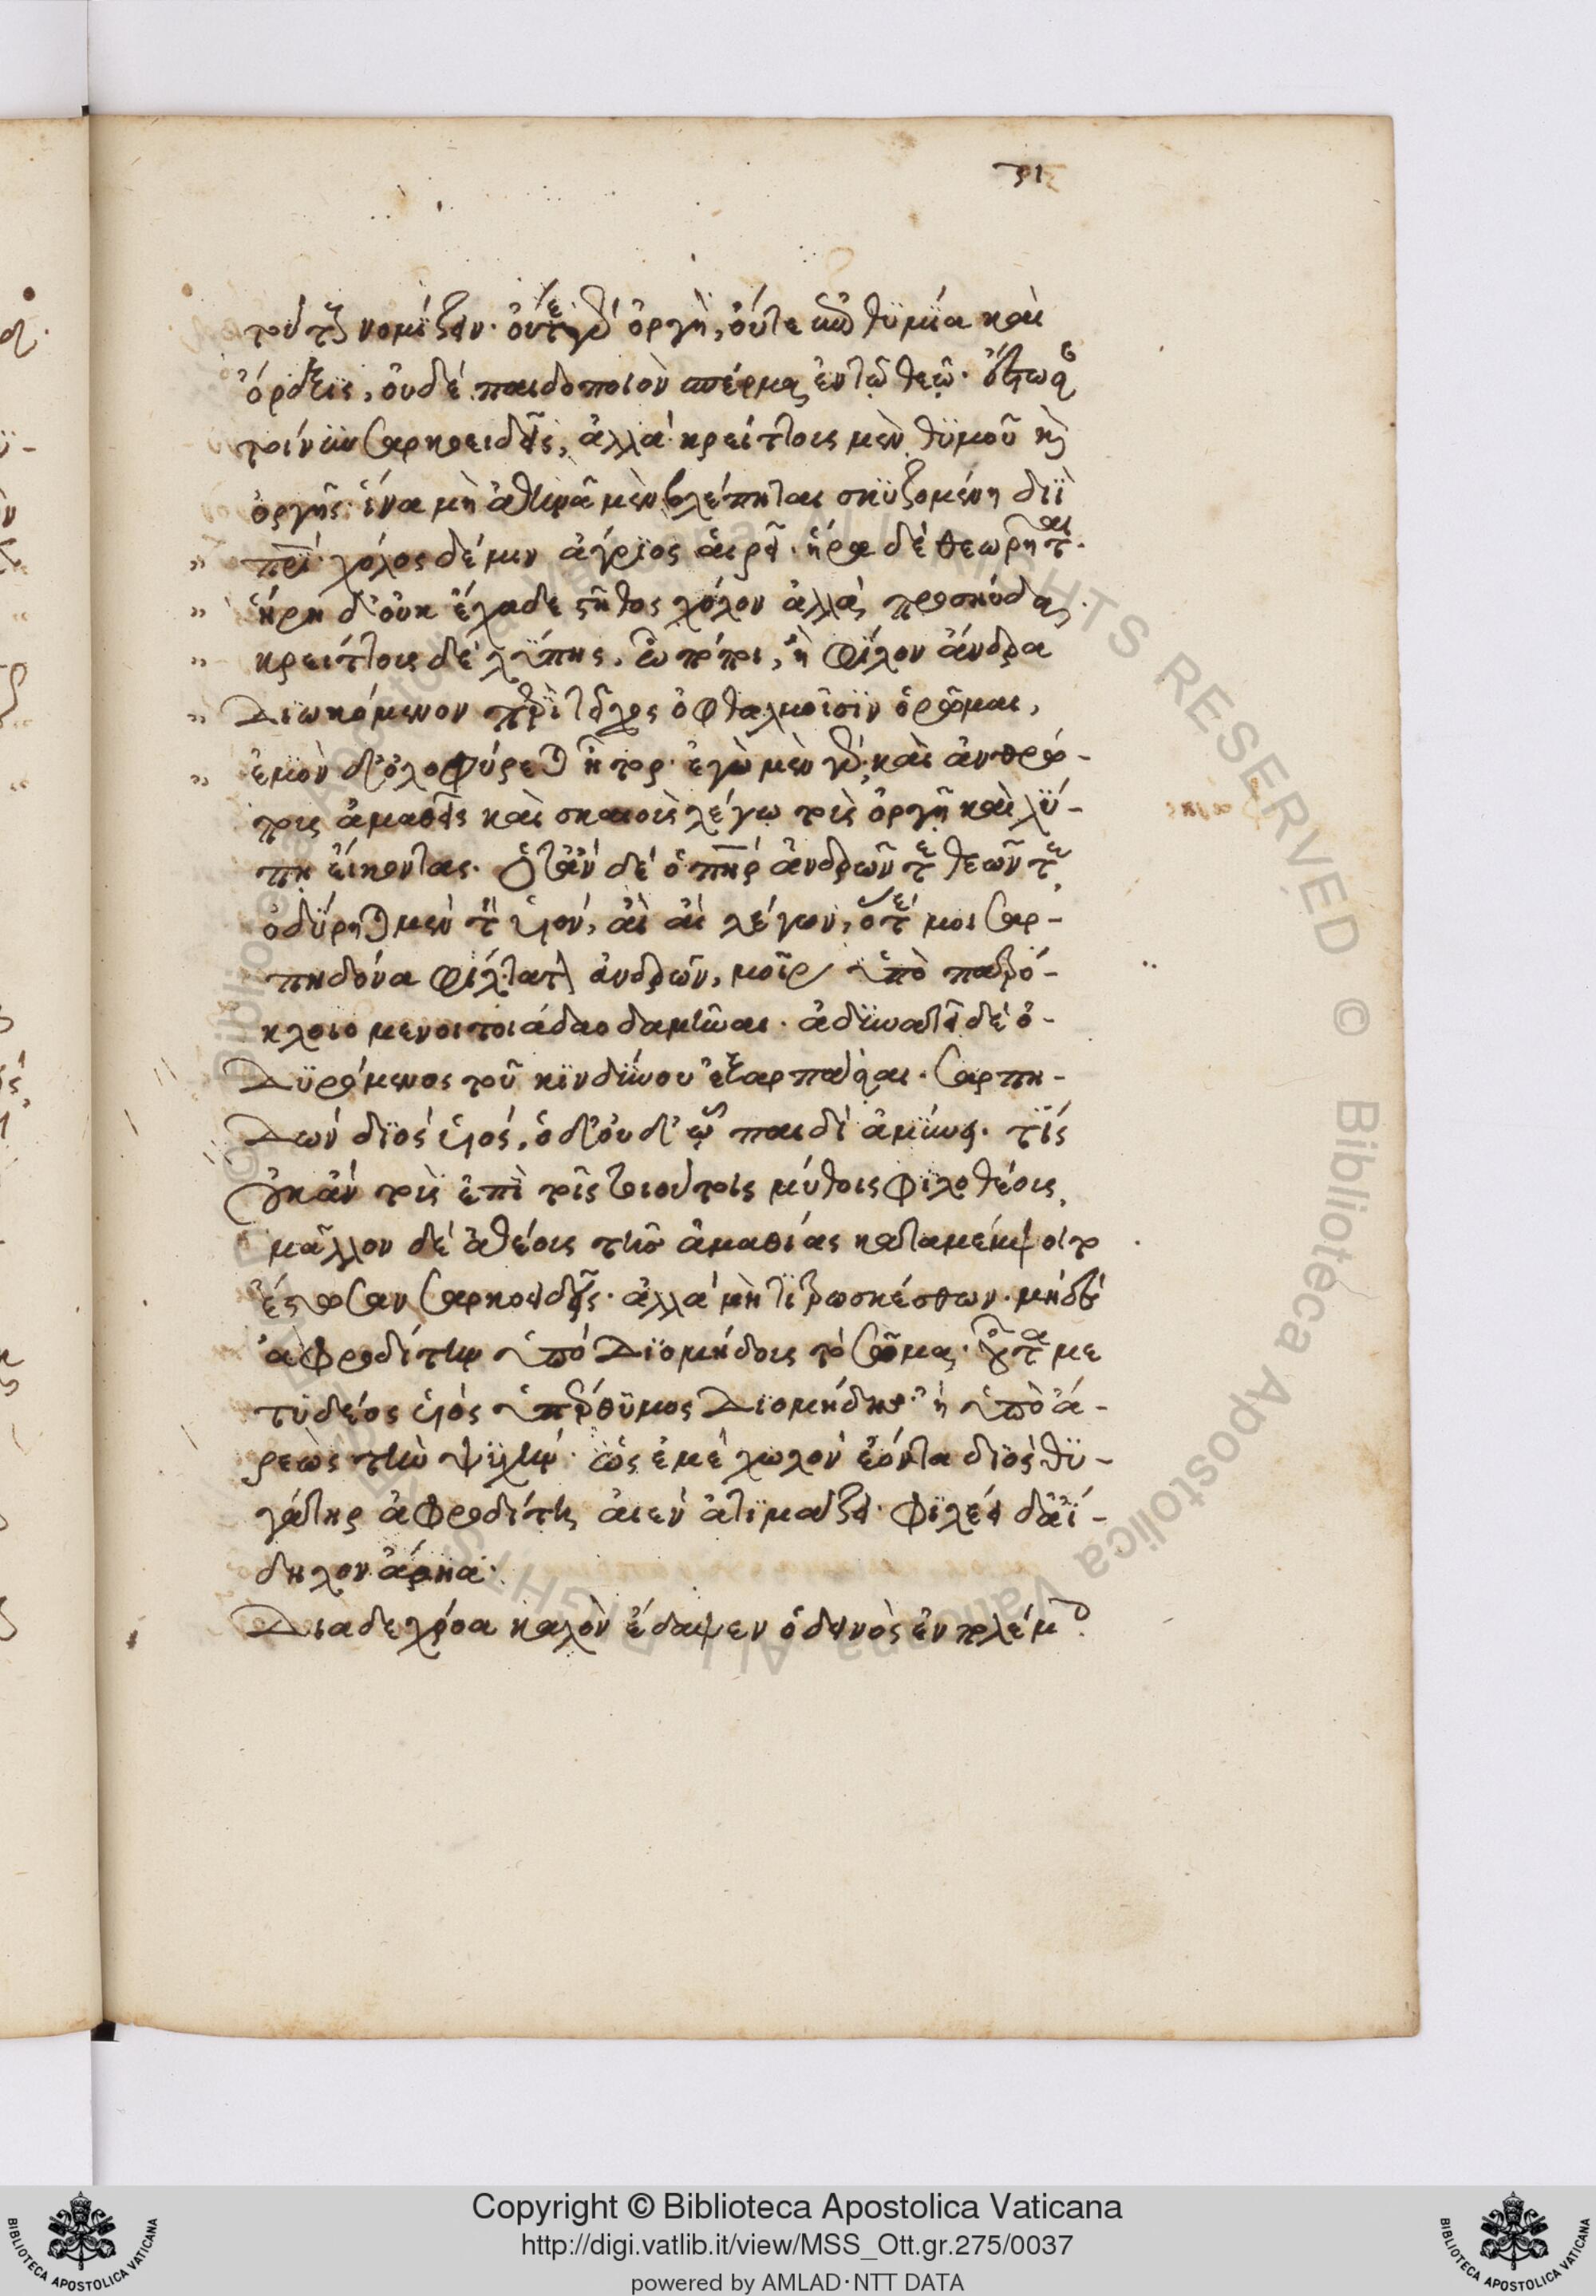 31
τούτοις νομίζειν. οὔτε γὰρ ὀργὴ, οὔτε ἐπιθυμία καὶ
ὄρεξις, οὐδὲ παιδοποιὸν σπέρμα ἐν τῷ θεῷ. ἔστωσαν
τοίνυν σαρκοειδεῖς, ἀλλὰ κρείττους μὲν θυμοῦ καὶ
ὀργῆς· ἵνα μὴ ἀθηνᾶ μὲν βλέπηται σκυζομένη διῒ
πατρί· χόλος δέ μιν ἄγριος αἱρεῖ. ἥρα δὲ θεωρῆται.
ἥρῃ δ' οὐκ ἔχαδε στῆθος χόλον ἀλλὰ προσηύδα.
κρείττους δὲ λύπης. ὦ πόποι, ἢ φίλον ἄνδρα
διωκόμενον περὶ τεῖχος ὀφθαλμοῖσιν ὁρῶμαι,
ἐμὸν δ' ὀλοφύρεται ἦτορ. ἐγὼ μὲν γὰρ καὶ ἀνθρώ-
πους ἀμαθεῖς καὶ σκαιοὺς λέγω τοὺς ὀργῇ καὶ λύ-
πῃ εἴκοντας. ὅταν δὲ ὁ πατὴρ ἀνδρῶν τε θεῶν τε
ὀδύρηται μὲν τὸν υἱὸν, αἲ αἲ λέγων, ὅτε μοι σαρ-
πηδόνα φίλτατον ἀνδρῶν, μοῖρ ὑπὸ πατρό-
κλοιο μενοιτιάδαο δαμῆναι. ἀδυνατεῖ δὲ ὀ-
δυρόμενος τοῦ κινδύνου ἐξαρπάσαι. σαρπη-
δὼν διὸς υἱός, ὁ δ' οὐδ' ᾧ παιδὶ ἀμύνει. τίς
οὐκ ἂν τοὺς ἐπὶ τοῖς τοιούτοις μύθοις φιλοθέους,
μᾶλλον δὲ ἀθέους τῆς ἀμαθίας καταμέμψοιτο
ἔστωσαν σαρκοειδεῖς. ἀλλὰ μὴ τιτρωσκέσθων. μήδε
ἀφροδίτην ὑπὸ διομήδους τὸ σῶμα. οὖτά με
τυδέος υἱὸς ὑπέρθυμος διομήδης· ἢ ὑπὸ ἄ-
ρεως τὴν ψυχήν. ὡς ἐμὲ χωλὸν ἐόντα διὸς θυ-
γάτηρ ἀφροδίτη αἰὲν ἀτιμάζει. φιλέει δ' ἀΐ-
δηλον ἄρηα.
διὰ δὲ χρόα καλὸν ἔδαψεν ὁ δεινὸς ἐν πολέμοις
Copyright © Biblioteca Apostolica Vaticana
http://digi.vatlib.it/view/MSS_Ott.gr.275/0037
powered by AMLAD·NTT DATA